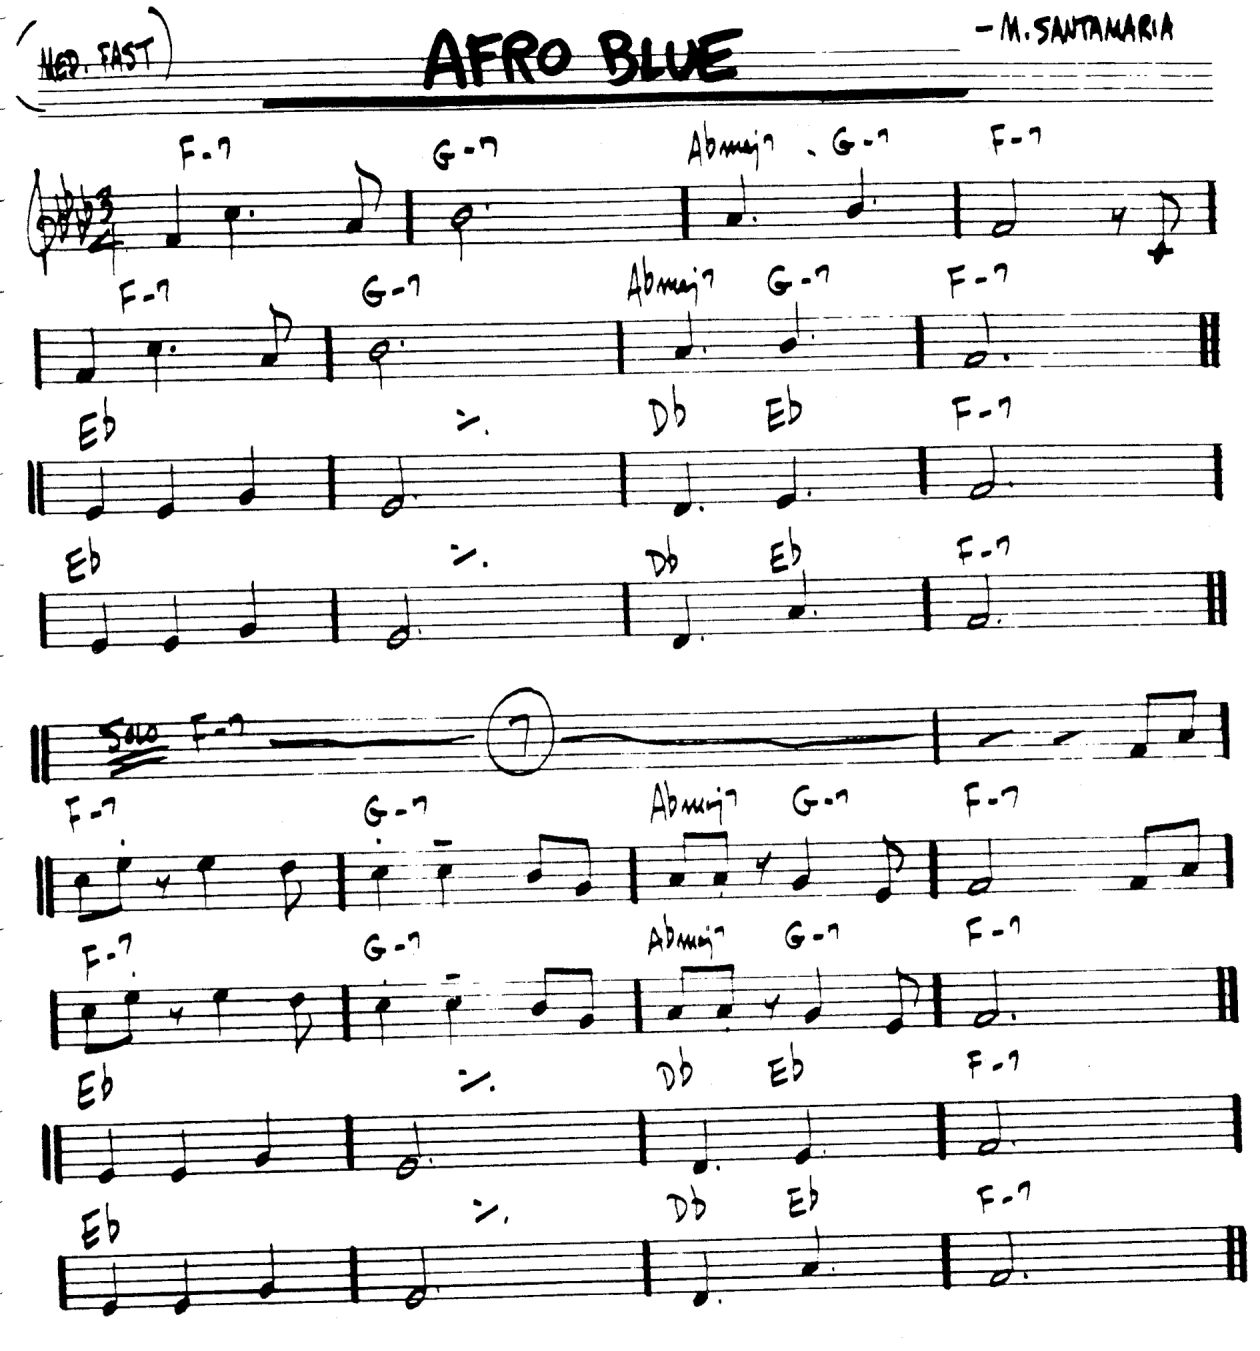 (MED. FAST) AFRO BLUE -M. SANTAMARIA
F-7 G-7 Abmaj7 G-7 F-7
3
4
F-7 G-7 Abmaj7 G-7 F-7
Eb ٪ Db Eb F-7
Eb ٪ Db Eb F-7
SOLO F-7 7
F-7 G-7 Abmaj7 G-7 F-7
F-7 G-7 Abmaj7 G-7 F-7
Eb ٪ Db Eb F-7
Eb ٪ Db Eb F-7